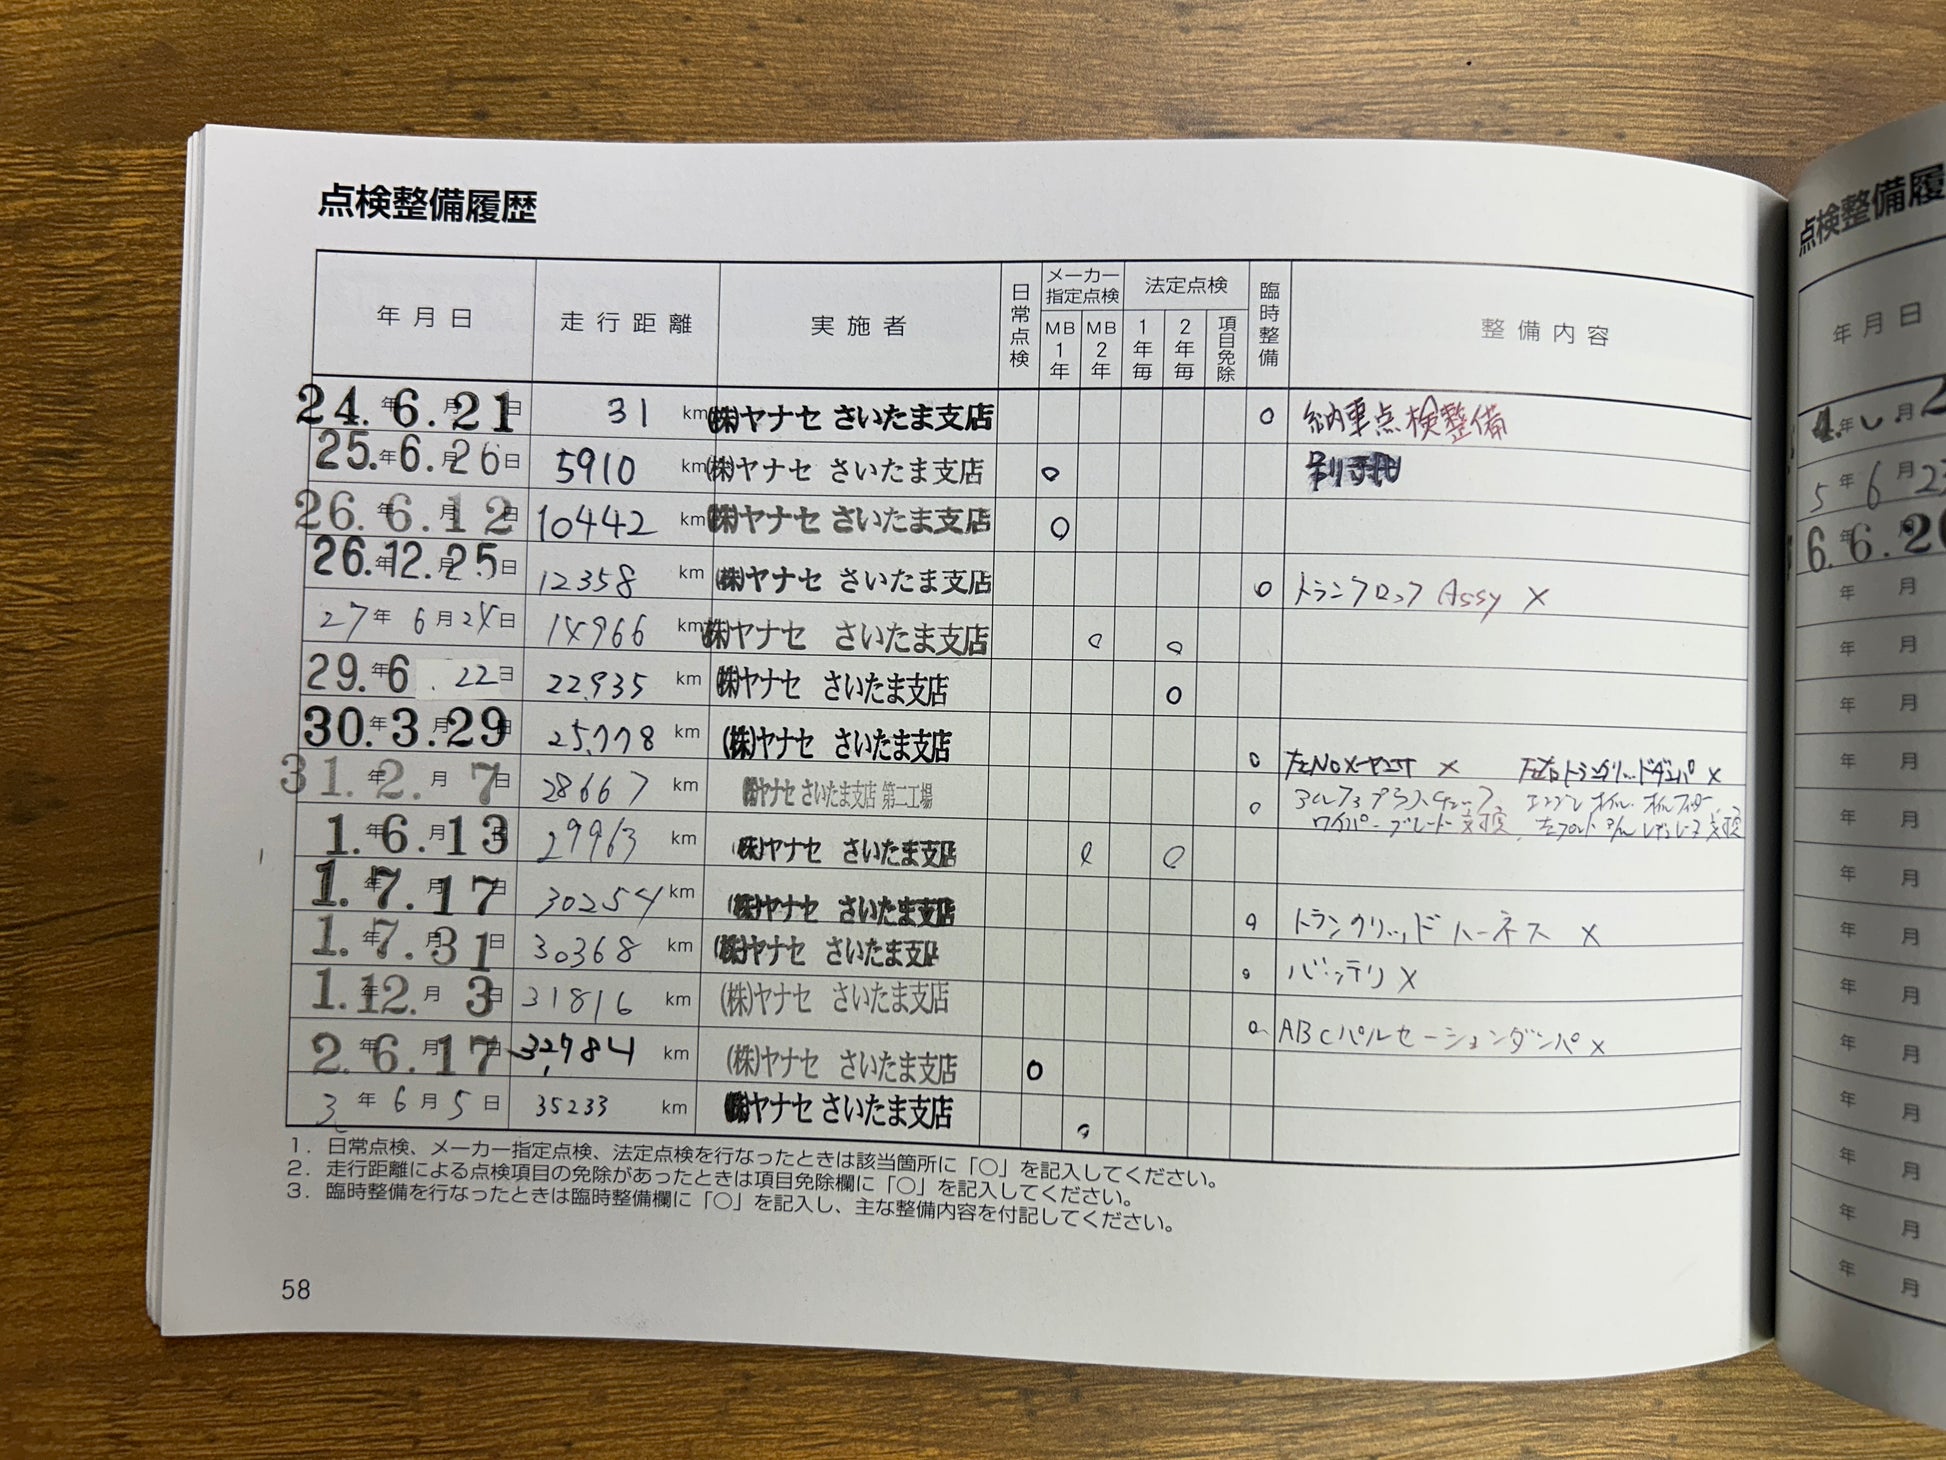 点検整備履歴
年月日 走行距離 実施者 日常点検 メーカー指定点検 MB1年 MB2年 法定点検 1年毎 2年毎 項目免除 臨時整備 整備内容
24.年6.月21日 31 km (株)ヤナセ さいたま支店 ○ 納車点検整備
25.年6.月26日 5910 km (株)ヤナセ さいたま支店 ○
26.年6.月12日 10442 km (株)ヤナセ さいたま支店 ○
26.年12.月25日 12358 km (株)ヤナセ さいたま支店 ○ トランクロック Assy ×
27年6月24日 14966 km (株)ヤナセ さいたま支店 ○ ○
29.年6.22日 22,935 km (株)ヤナセ さいたま支店 ○
30.年3.月29日 25,778 km (株)ヤナセ さいたま支店 ○ 左NOx × 左右トランクリッドダンパ ×
31.年2.月7日 28667 km (株)ヤナセ さいたま支店 第二工場 ○ エンジンオイル、オイルフィルター
ワイパーブレード交換、左フロント 交換
1.年6.月13日 29963 km (株)ヤナセ さいたま支店 ○ ○
1.年7.月17日 30254 km (株)ヤナセ さいたま支店 ○ トランクリッドハーネス ×
1.年7.月31日 30368 km (株)ヤナセ さいたま支店 ○ バッテリ ×
1.年12.月3日 31816 km (株)ヤナセ さいたま支店 ○ ABCパルセーションダンパ ×
2.年6.月17日 32,784 km (株)ヤナセ さいたま支店 ○
3年6月5日 35233 km (株)ヤナセ さいたま支店 ○
1. 日常点検、メーカー指定点検、法定点検を行なったときは該当箇所に「○」を記入してください。
2. 走行距離による点検項目の免除があったときは項目免除欄に「○」を記入してください。
3. 臨時整備を行なったときは臨時整備欄に「○」を記入し、主な整備内容を付記してください。
58
点検整備履
年月日
4.年 月2
5年6月2
6.年6.月2
年 月
年 月
年 月
年 月
年 月
年 月
年 月
年 月
年 月
年 月
年 月
年 月
年 月